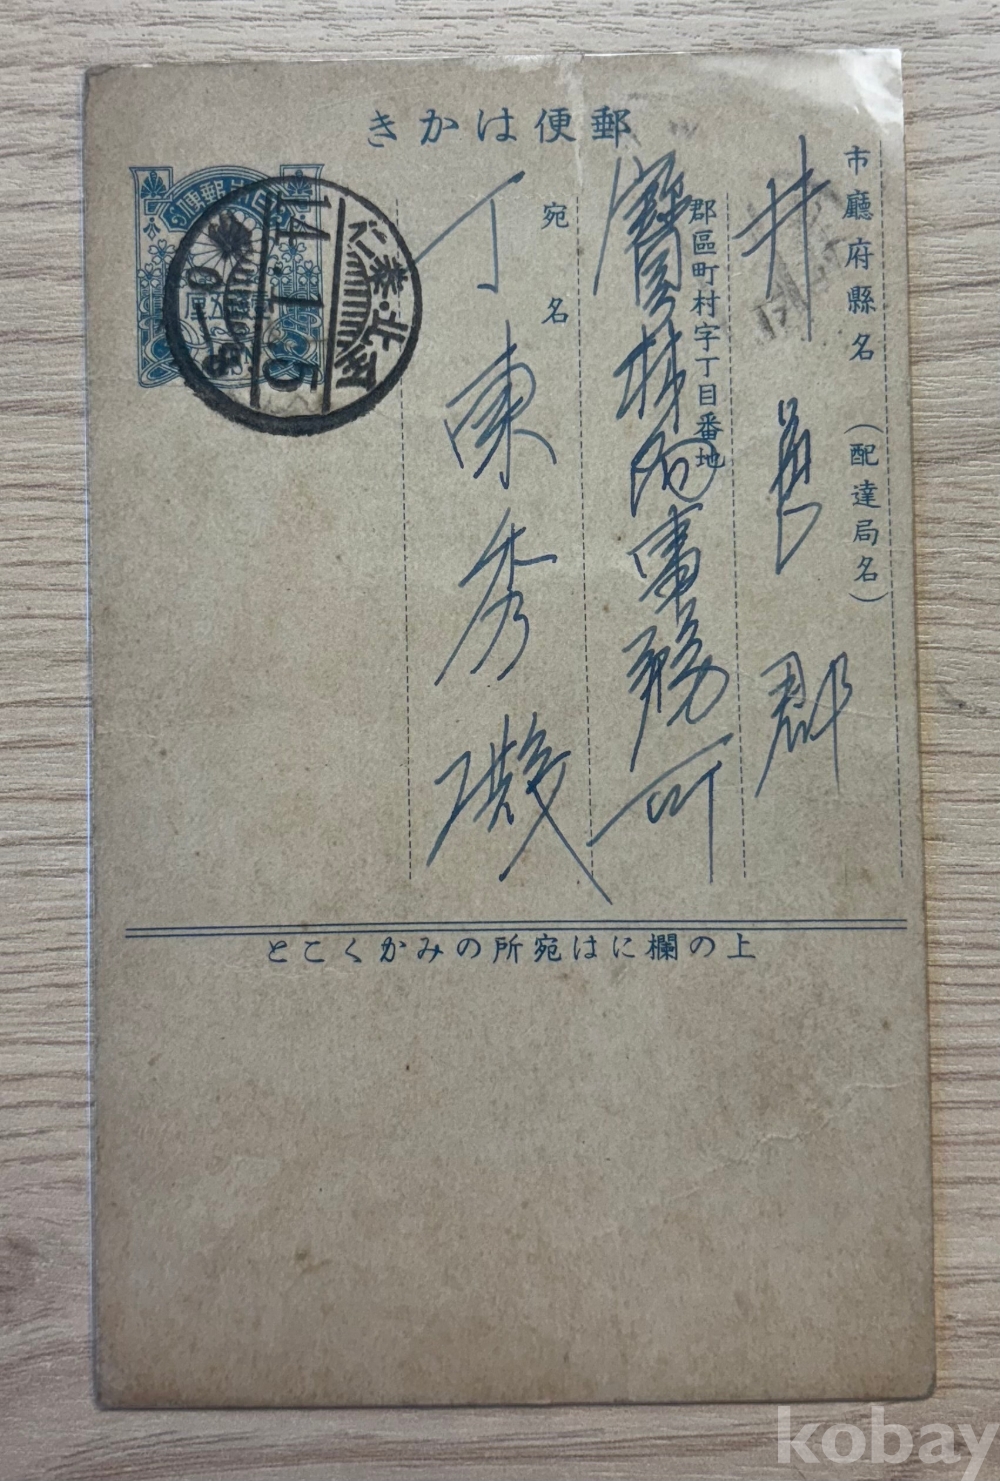 郵便はかき
市廳府縣名 (配達局名)
郡區町村字丁目番地
宛名
井邑郡
寶林面事務所
丁東秀殿
14.1.5
上の欄には宛所のみかくこと
kobay